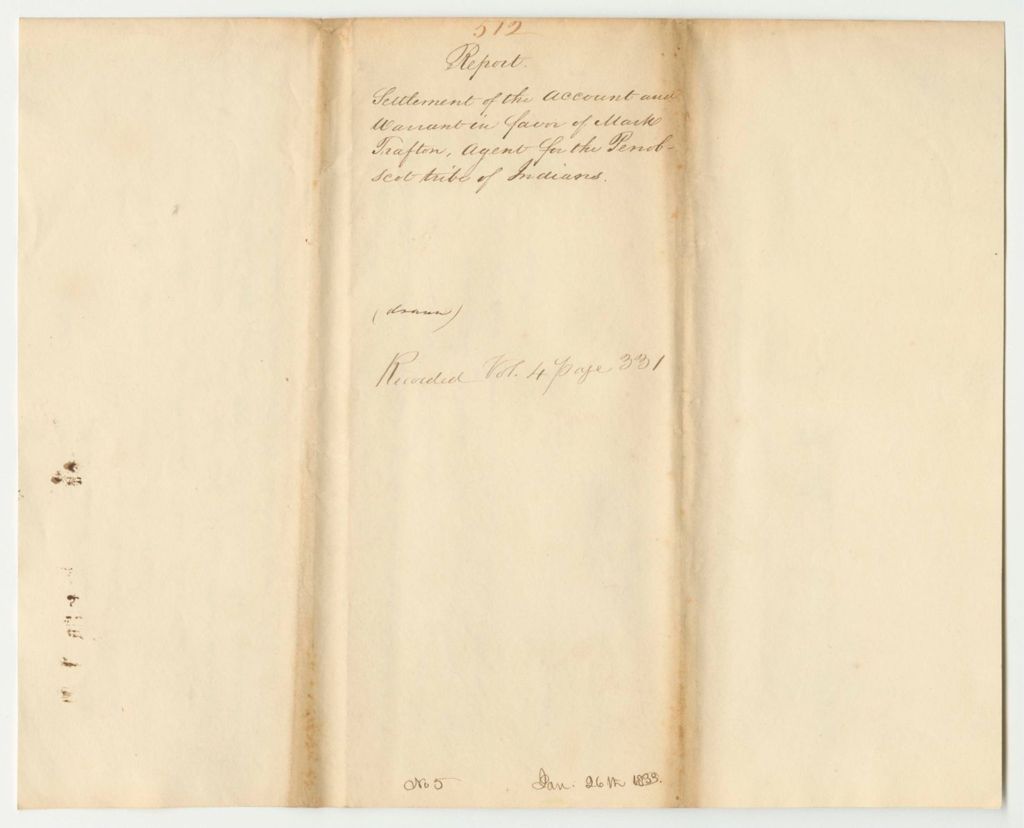 512
Report.
Settlement of the Account and
Warrant in favor of Mark
Trafton, Agent for the Penob-
scot tribe of Indians.
(drawn)
Recorded Vol. 4 page 331
No 5 Jan. 26th 1833.